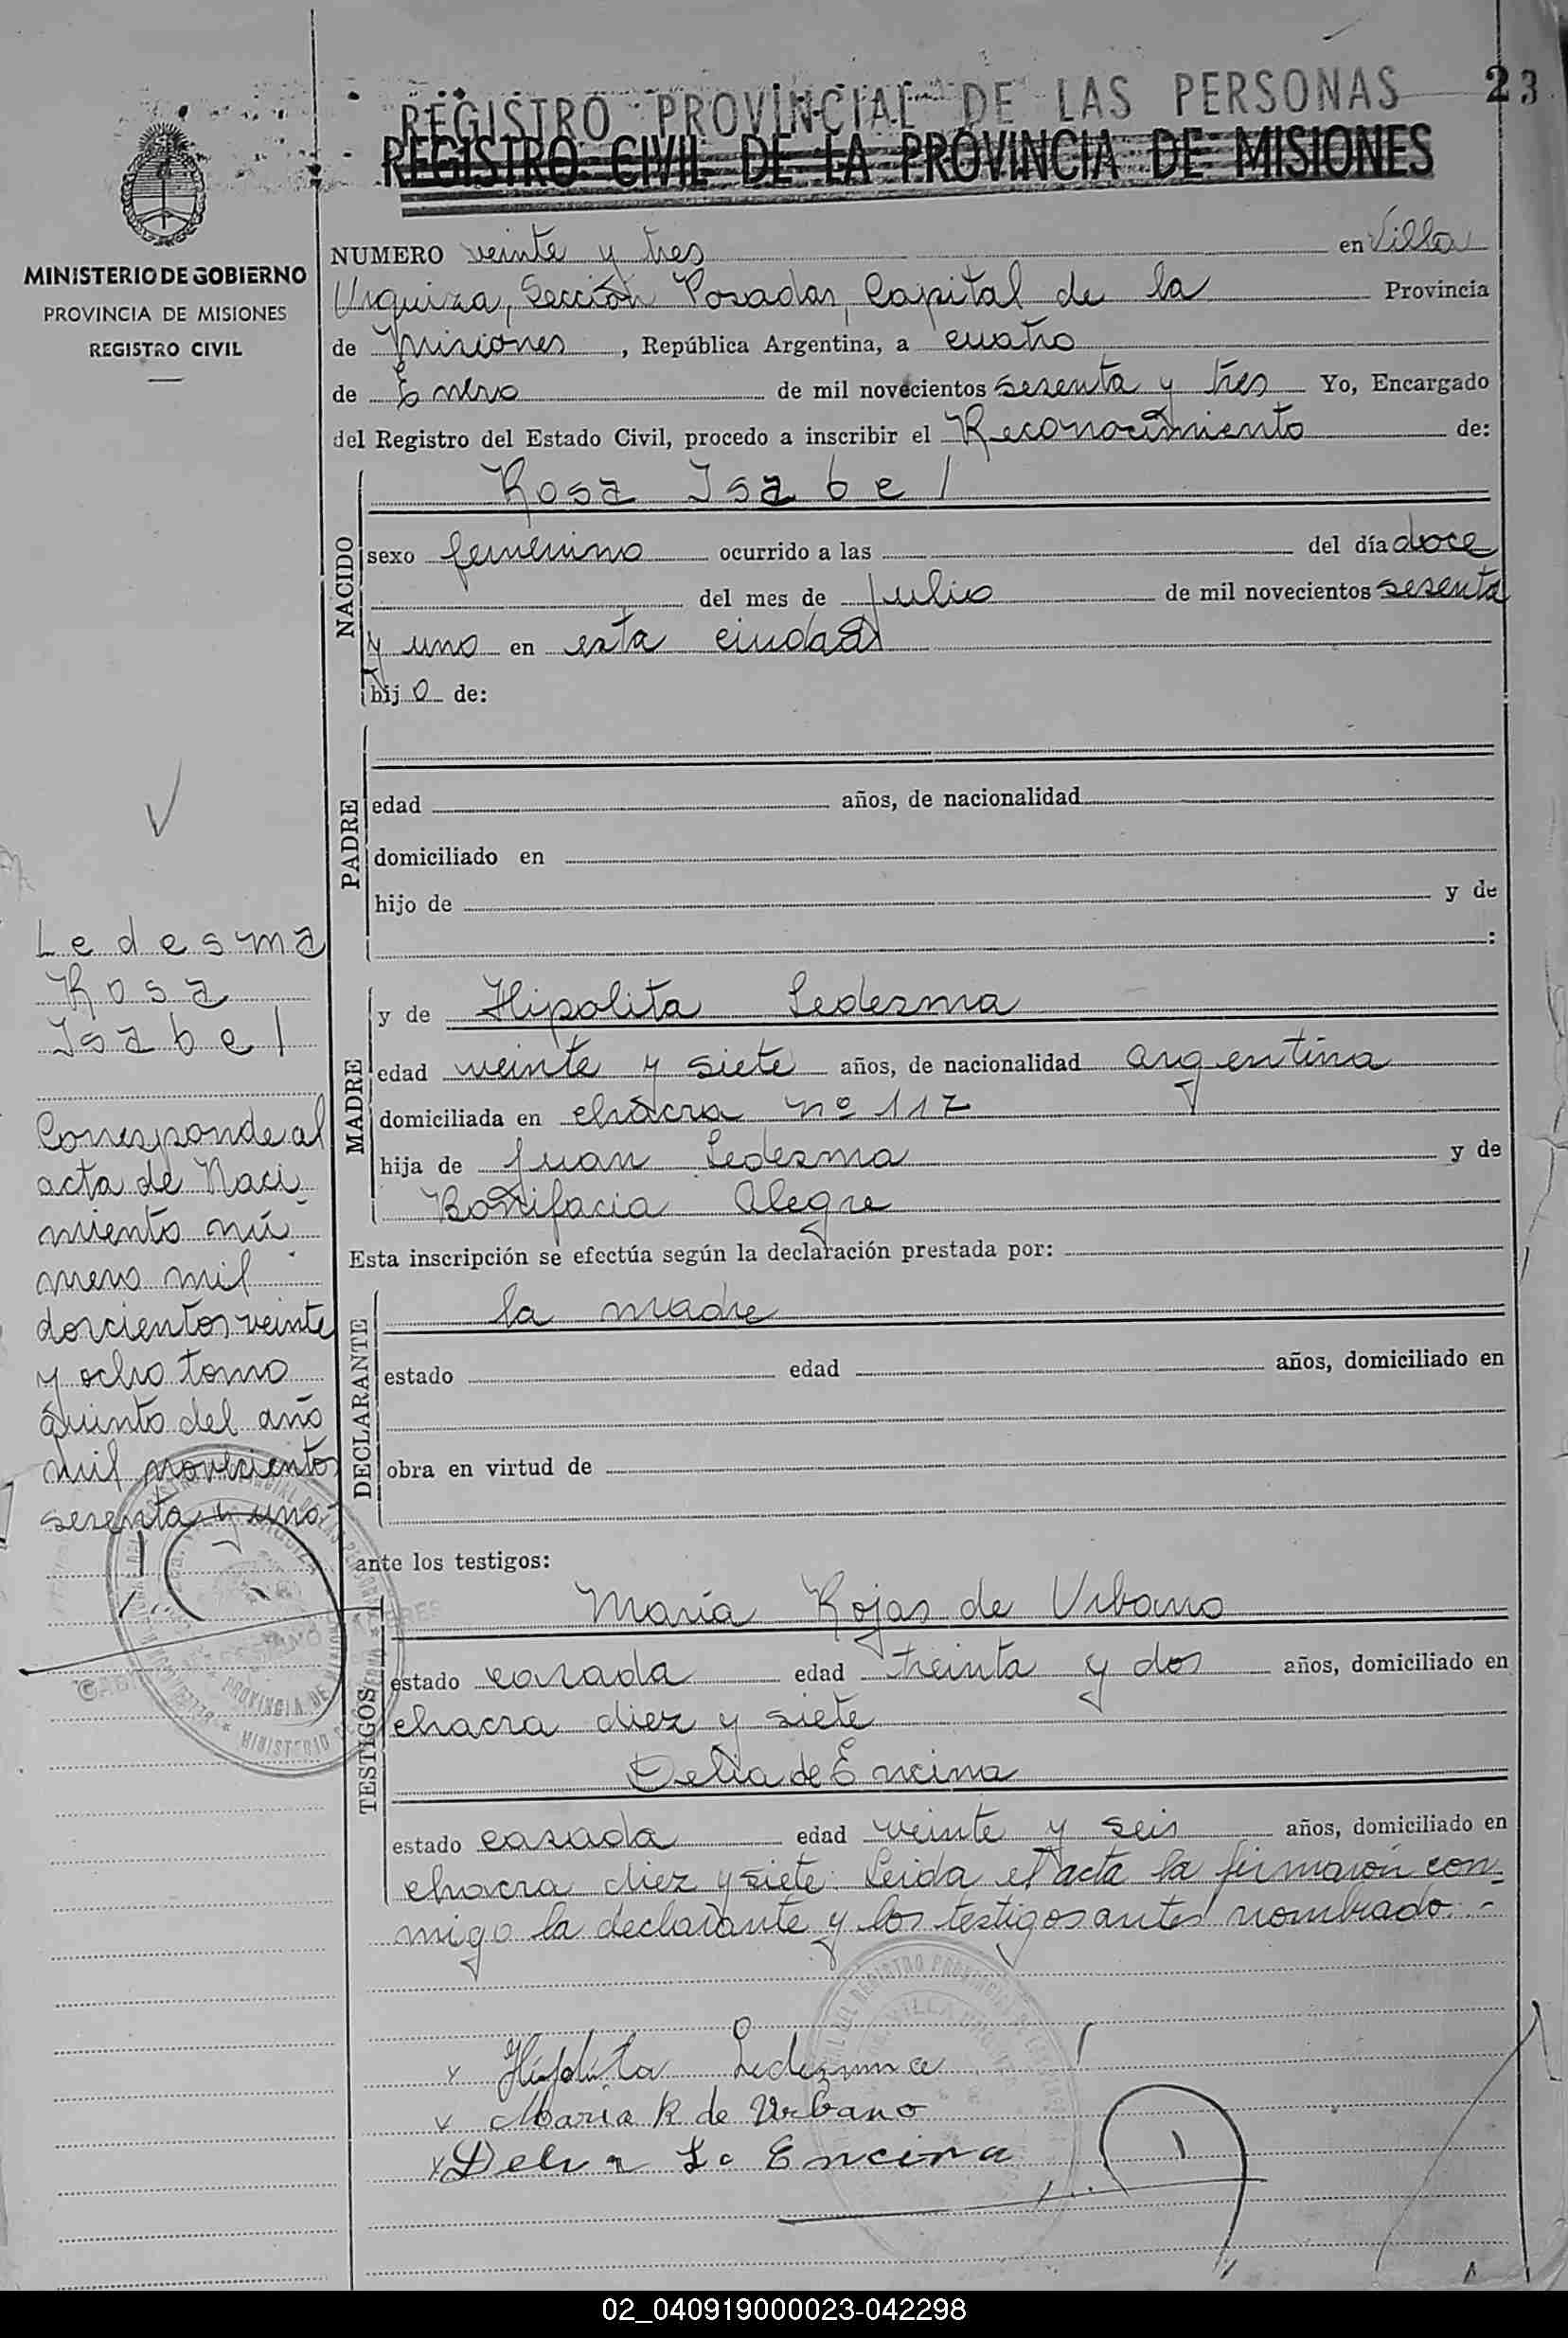 REGISTRO PROVINCIAL DE LAS PERSONAS 23
REGISTRO CIVIL DE LA PROVINCIA DE MISIONES
MINISTERIO DE GOBIERNO
PROVINCIA DE MISIONES
REGISTRO CIVIL
NUMERO veinte y tres en Villa
Urquiza, Sección Posadas, Capital de la Provincia
de Misiones, República Argentina, a cuatro
de Enero de mil novecientos sesenta y tres Yo, Encargado
del Registro del Estado Civil, procedo a inscribir el Reconocimiento de:
NACIDO
Rosa Isabel
sexo femenino ocurrido a las del día doce
del mes de Julio de mil novecientos sesenta
y uno en esta ciudad
hij a de:
PADRE
edad años, de nacionalidad
domiciliado en
hijo de y de
:
MADRE
y de Hipolita Ledesma
edad veinte y siete años, de nacionalidad argentina
domiciliada en chacra nº 117
hija de Juan Ledesma y de
Bonifacia Alegre
Esta inscripción se efectúa según la declaración prestada por:
DECLARANTE
la madre
estado edad años, domiciliado en
obra en virtud de
ante los testigos:
TESTIGOS
María Rojas de Urbano
estado casada edad treinta y dos años, domiciliado en
chacra diez y siete
Delia de Encina
estado casada edad veinte y seis años, domiciliado en
chacra diez y siete. Leida el acta la firmaron con-
migo la declarante y los testigos antes nombrado.-
x Hipólita Ledezma
x Maria R de Urbano
x Delia de Encina
Ledesma
Rosa
Isabel
Corresponde al
acta de Naci
miento nú
mero mil
doscientos veinte
y ocho tomo
quinto del año
mil novecientos
sesenta y uno.
02_040919000023-042298